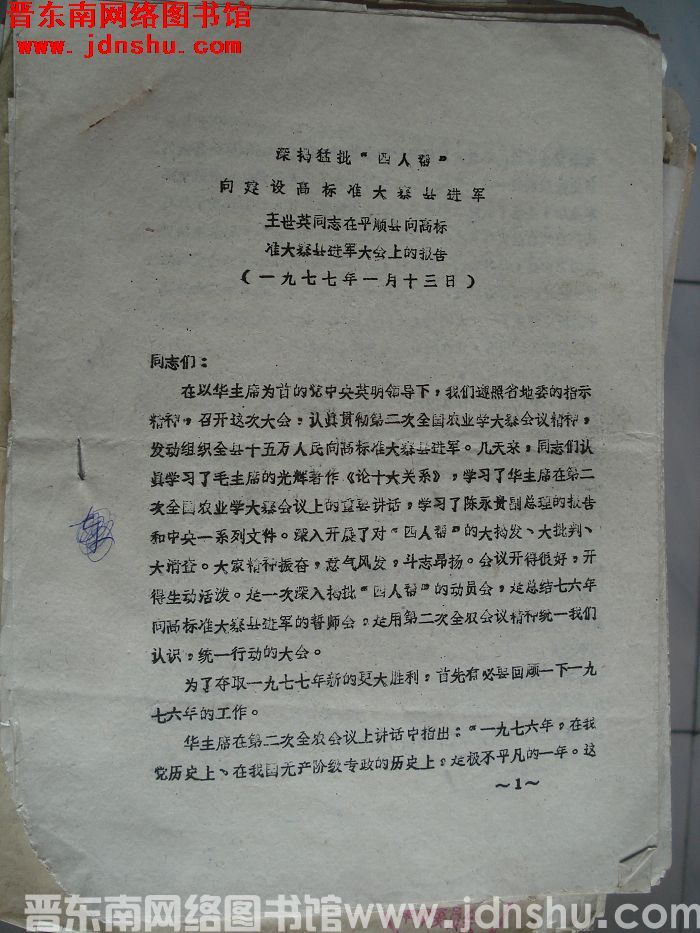 晋东南网络图书馆
www.jdnshu.com
深揭猛批“四人帮”
向建设高标准大寨县进军
王世英同志在平顺县向高标
准大寨县进军大会上的报告
（一九七七年一月十三日）
同志们：
在以华主席为首的党中央英明领导下，我们遵照省地委的指示
精神，召开这次大会，认真贯彻第二次全国农业学大寨会议精神，
发动组织全县十五万人民向高标准大寨县进军。几天来，同志们认
真学习了毛主席的光辉著作《论十大关系》，学习了华主席在第二
次全国农业学大寨会议上的重要讲话，学习了陈永贵副总理的报告
和中央一系列文件。深入开展了对“四人帮”的大揭发、大批判、
大清查。大家精神振奋，意气风发，斗志昂扬。会议开得很好，开
得生动活泼。是一次深入揭批“四人帮”的动员会，是总结七六年
向高标准大寨县进军的誓师会，是用第二次全农会议精神统一我们
认识，统一行动的大会。
为了夺取一九七七年新的更大胜利，首先有必要回顾一下一九
七六年的工作。
华主席在第二次全农会议上讲话中指出：“一九七六年，在我
党历史上、在我国无产阶级专政的历史上，是极不平凡的一年。这
～1～
晋东南网络图书馆 www.jdnshu.com